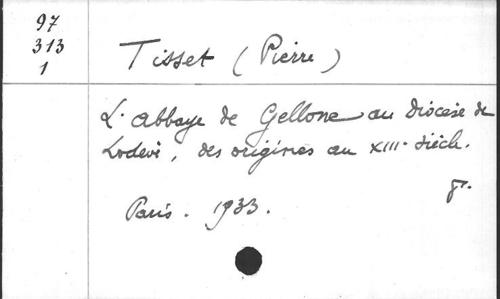 97
313
1
Tisset (Pierre)
L'abbaye de Gellone au diocèse de
Lodève, des origines au XIIIe siècle.
Paris. 1933.
8°.